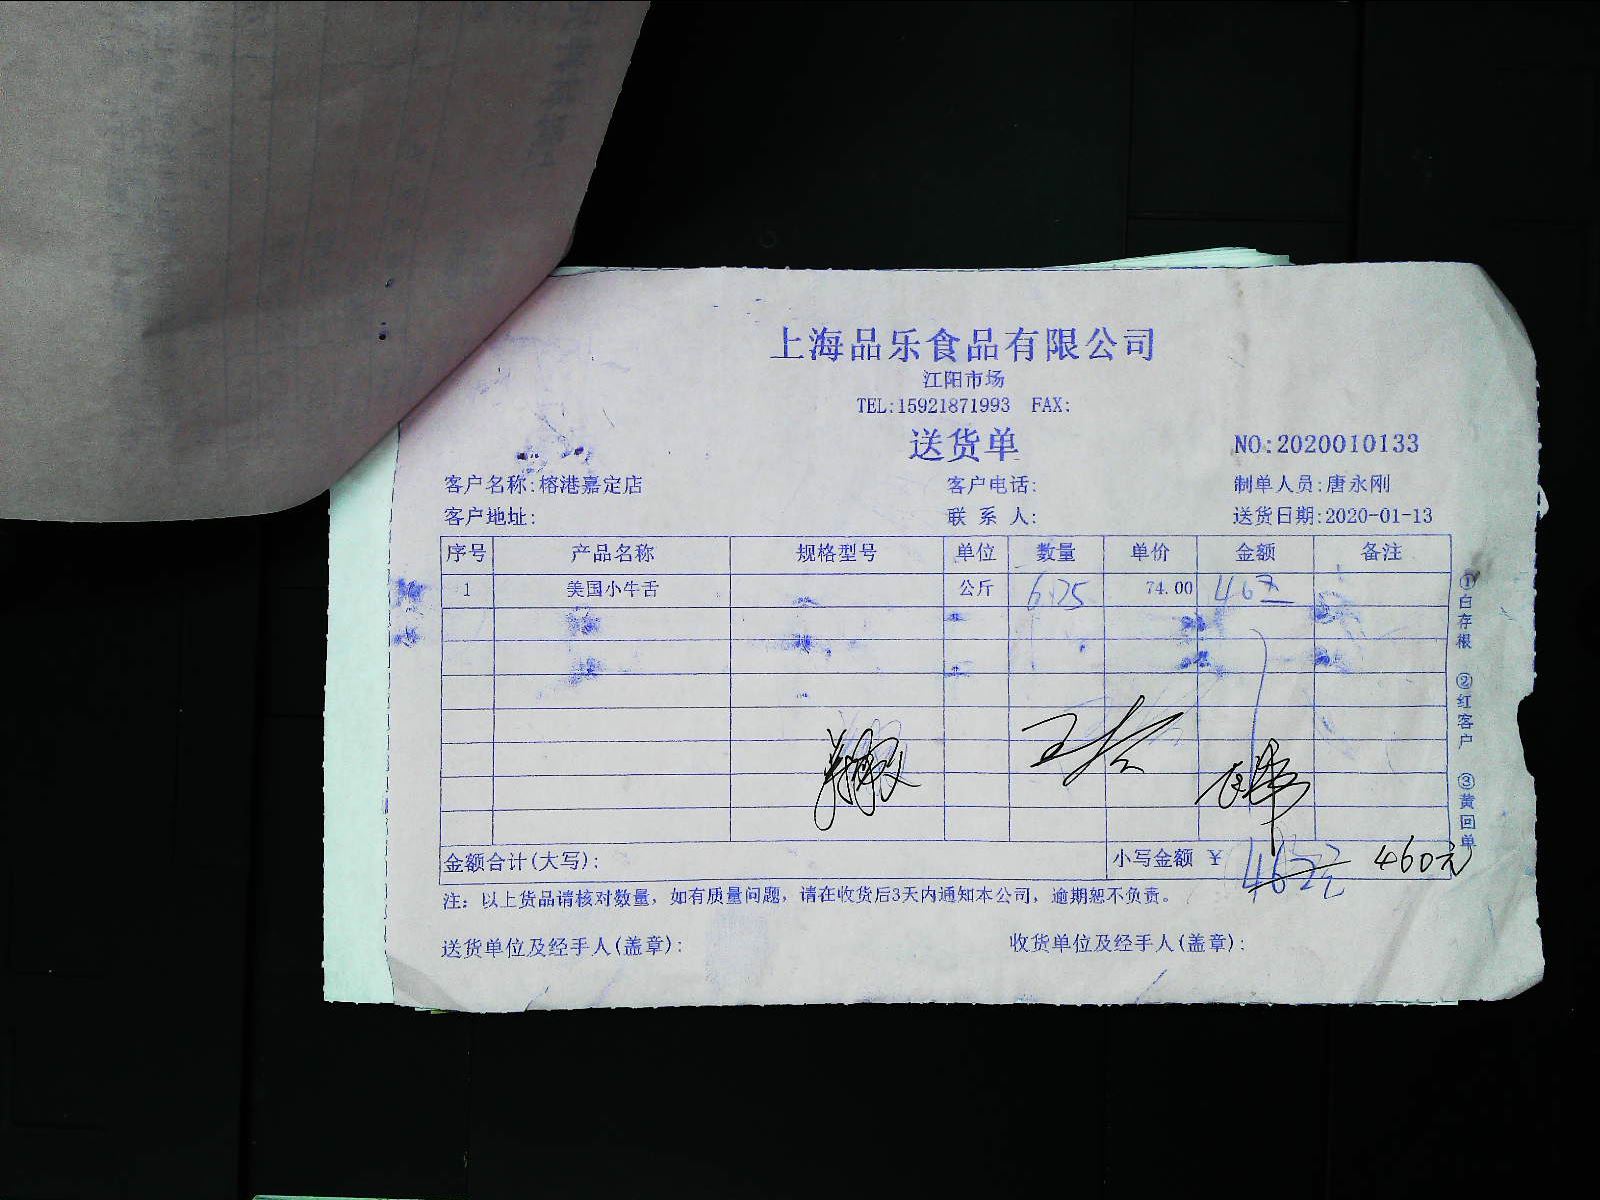 上海品乐食品有限公司
江阳市场
TEL:15921871993 FAX:
送货单 NO:2020010133
客户名称:榕港嘉定店 客户电话: 制单人员:唐永刚
客户地址: 联系人: 送货日期:2020-01-13
序号 产品名称 规格型号 单位 数量 单价 金额 备注
1 美国小牛舌 公斤 6.25 74.00
金额合计(大写): 小写金额 ¥ 462元 460元
注: 以上货品请核对数量, 如有质量问题, 请在收货后3天内通知本公司, 逾期恕不负责。
送货单位及经手人(盖章): 收货单位及经手人(盖章):
①白存根 ②红客户 ③黄回单